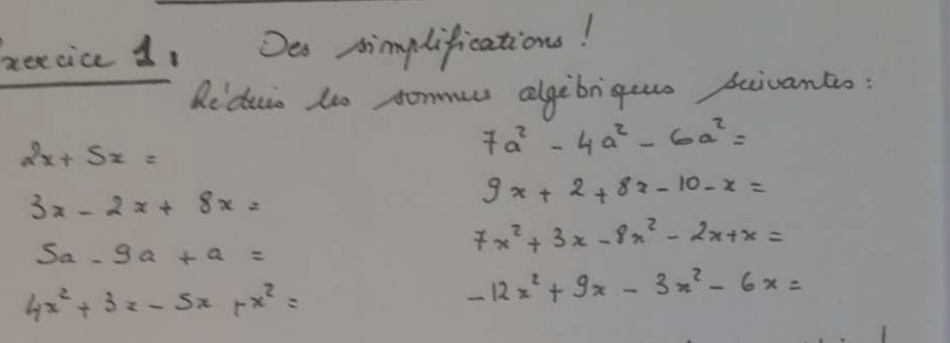 xercice 1. Des simplifications !
Réduis les sommes algébriques suivantes :
2x + 5x =
3x - 2x + 8x =
5a - 9a + a =
4x² + 3x - 5x + x² =
7a² - 4a² - 6a² =
9x + 2 + 8x - 10 - x =
7x² + 3x - 8x² - 2x + x =
-12x² + 9x - 3x² - 6x =